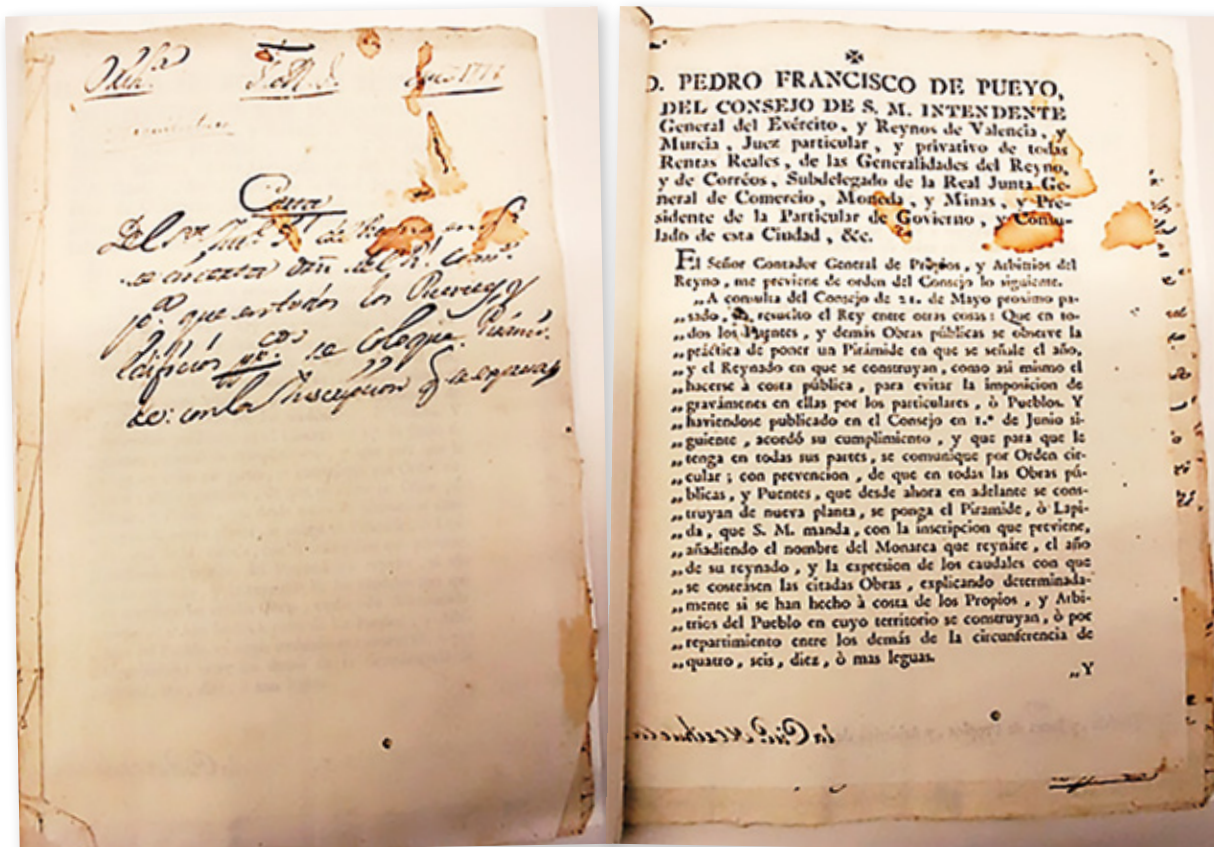 Carta
que en todos los Puentes, y
Edificios se coloque
con la Inscripcion
D. PEDRO FRANCISCO DE PUEYO,
DEL CONSEJO DE S. M. INTENDENTE
General del Exército, y Reynos de Valencia, y
Murcia, Juez particular, y privativo de todas
Rentas Reales, de las Generalidades del Reyno,
y de Corréos, Subdelegado de la Real Junta Ge-
neral de Comercio, Moneda, y Minas, y Pre-
sidente de la Particular de Govierno, y Consu-
lado de esta Ciudad, &c.
El Señor Contador General de Propios, y Arbitrios del
Reyno, me previene de orden del Consejo lo siguiente.
„A consulta del Consejo de 21. de Mayo proximo pa-
„sado, resuelto el Rey entre otras cosas: Que en to-
„dos los Puentes, y demás Obras públicas se observe la
„práctica de poner un Pirámide en que se señale el año,
„y el Reynado en que se construyan, como asi mismo el
„hacerse à costa pública, para evitar la imposicion de
„gravámenes en ellas por los particulares, ò Pueblos. Y
„haviendose publicado en el Consejo en 1.º de Junio si-
„guiente, acordó su cumplimiento, y que para que le
„tenga en todas sus partes, se comunique por Orden cir-
„cular; con prevencion, de que en todas las Obras pú-
„blicas, y Puentes, que desde ahora en adelante se cons-
„truyan de nueva planta, se ponga el Piramide, ò Lapi-
„da, que S. M. manda, con la inscripcion que previene,
„añadiendo el nombre del Monarca que reynáre, el año
„de su reynado, y la expresion de los caudales con que
„se costeásen las citadas Obras, explicando determinada-
„mente si se han hecho à costa de los Propios, y Arbi-
„trios del Pueblo en cuyo territorio se construyan, ò por
„repartimiento entre los demás de la circunferencia de
„quatro, seis, diez, ò mas leguas.
„Y